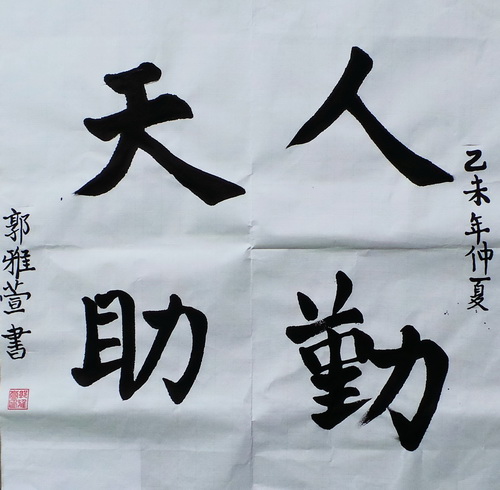 乙未年仲夏
人勤
天助
郭雅萱書